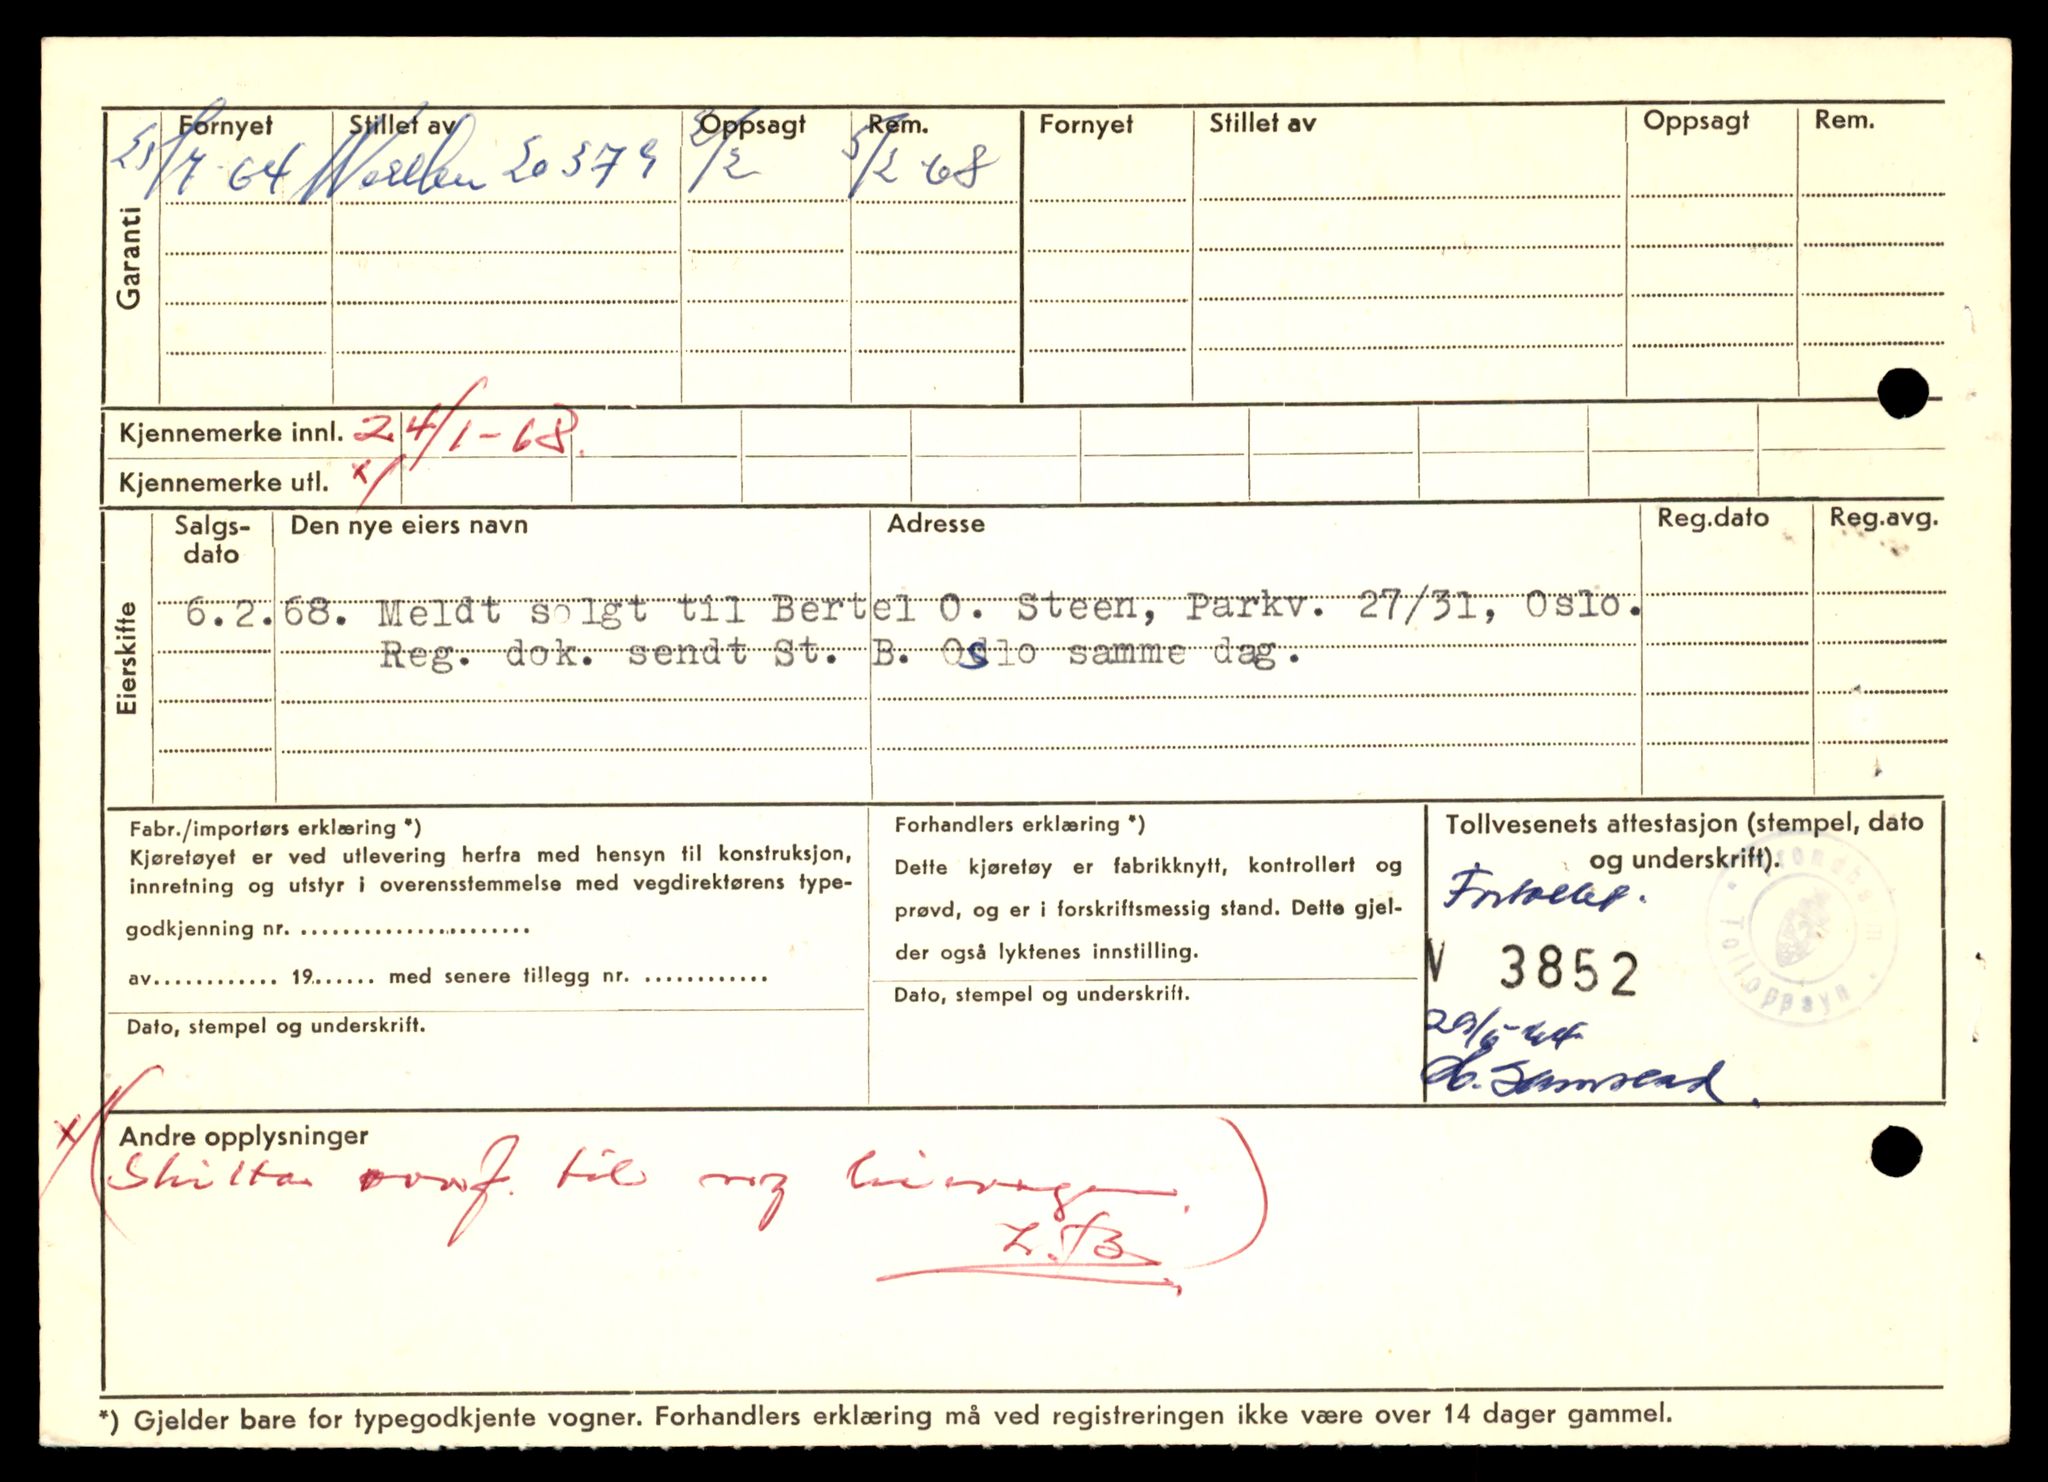 Garanti
Fornyet Stillet av Oppsagt Rem. Fornyet Stillet av Oppsagt Rem.
64 20379 2/2 5/2 68
Kjennemerke innl. 24/1-68.
Kjennemerke utl. x/
Eierskifte
Salgs-dato Den nye eiers navn Adresse Reg.dato Reg.avg.
6.2.68. Meldt solgt til Bertel O. Steen, Parkv. 27/31, Oslo.
Reg. dok. sendt St. B. Oslo samme dag.
Fabr./importørs erklæring *)
Kjøretøyet er ved utlevering herfra med hensyn til konstruksjon,
innretning og utstyr i overensstemmelse med vegdirektørens type-
godkjenning nr. ........................
av............ 19...... med senere tillegg nr. ............
Dato, stempel og underskrift.
Forhandlers erklæring *)
Dette kjøretøy er fabrikknytt, kontrollert og
prøvd, og er i forskriftsmessig stand. Dette gjel-
der også lyktenes innstilling.
Dato, stempel og underskrift.
Tollvesenets attestasjon (stempel, dato
og underskrift).
Fortollet.
Tolloppsyn
N 3852
x/ Andre opplysninger
(Skilta overf. til ny
*) Gjelder bare for typegodkjente vogner. Forhandlers erklæring må ved registreringen ikke være over 14 dager gammel.